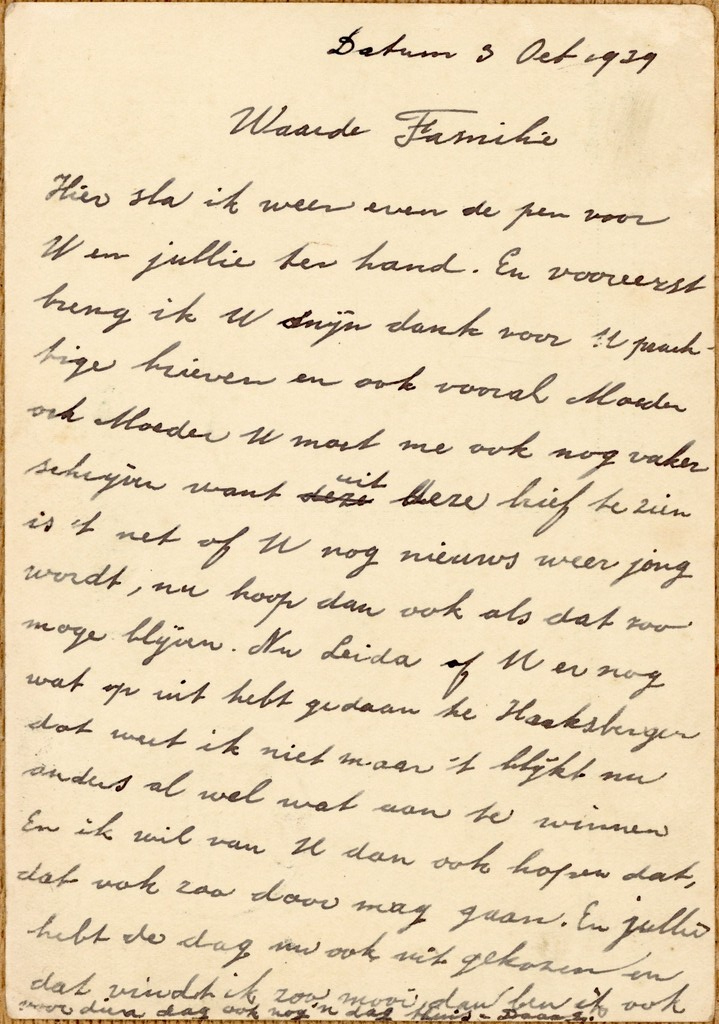 Datum 3 Oct 1939
Waarde Familie
Hier sla ik weer even de pen voor
U en jullie ter hand. En vooreerst
breng ik U mijn dank voor U prach-
tige brieven en ook vooral Moeder
ook Moeder U moet me ook nog vaker
schrijven want deze uit deze brief te zien
is 't net of U nog nieuws weer jong
wordt, nu hoop dan ook als dat zoo
moge blijven. Nu Leida of U er nog
wat op uit hebt gedaan te Haaksbergen
dat weet ik niet maar 't blijkt nu
anders al wel wat aan te winnen
En ik wil van U dan ook hopen dat,
dat ook zoo door mag gaan. En jullie
hebt de dag nu ook uit gekozen en
dat vindt ik zoo mooi dan ben ik ook
voor dien dag ook nog 'n dag thuis